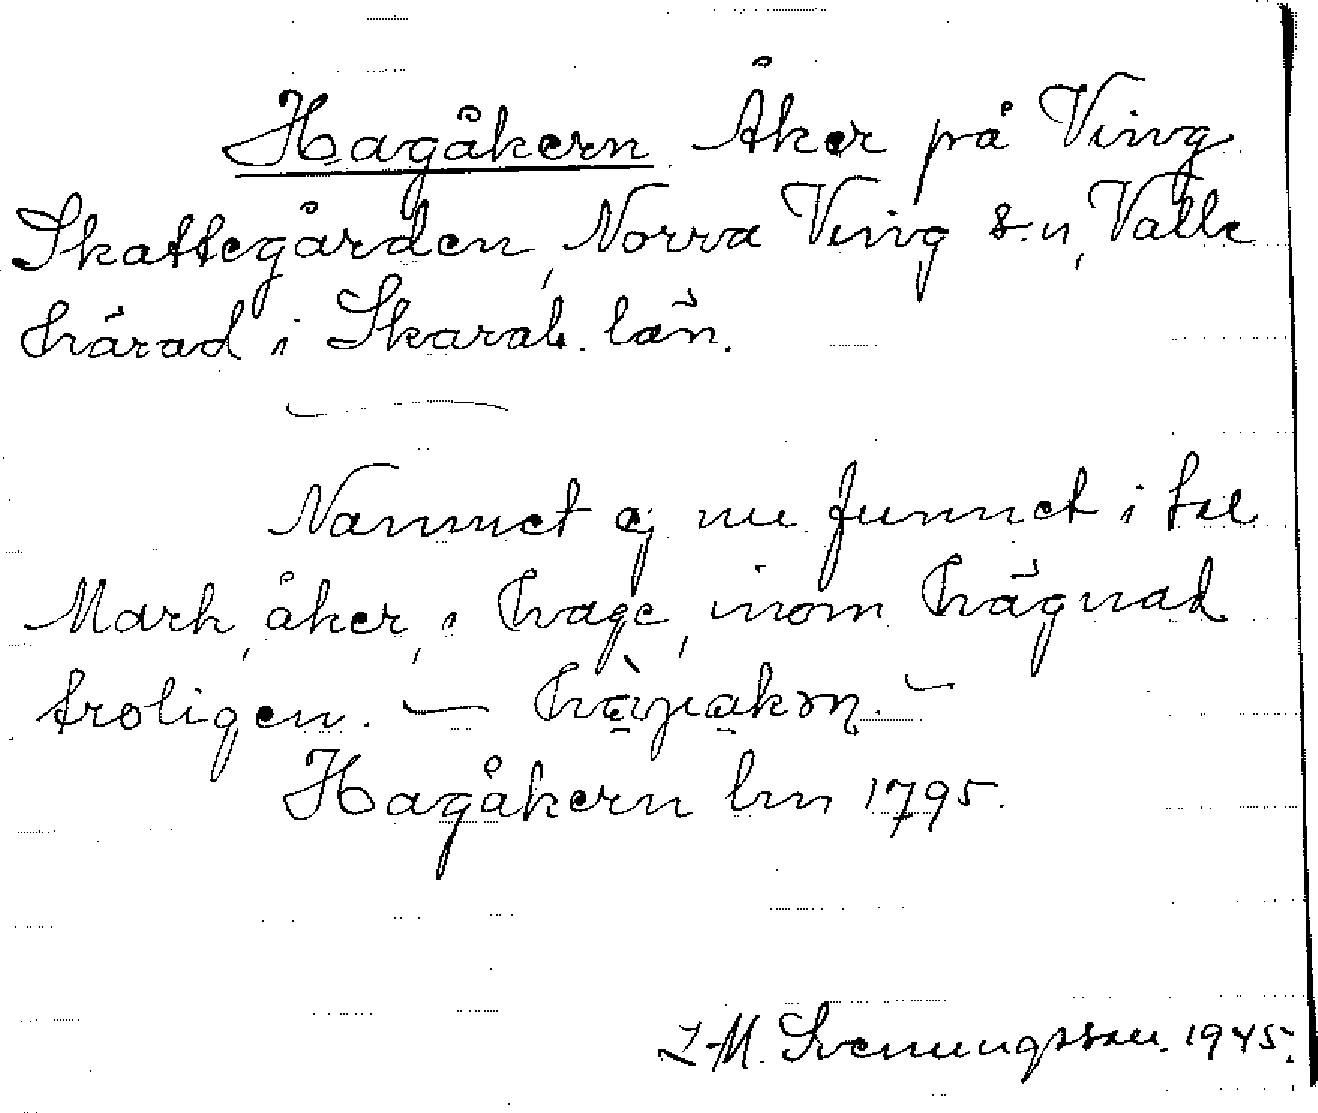 Hagåkern Åker på Ving
Skattegården, Norra Ving s:n, Valle
härad i Skarab. län.
Namnet ej nu funnet i tal
Mark, åker, i hage, inom hägnad
troligen. —
Hagåkern lm 1795.
L-M. Svenungsson. 1945.